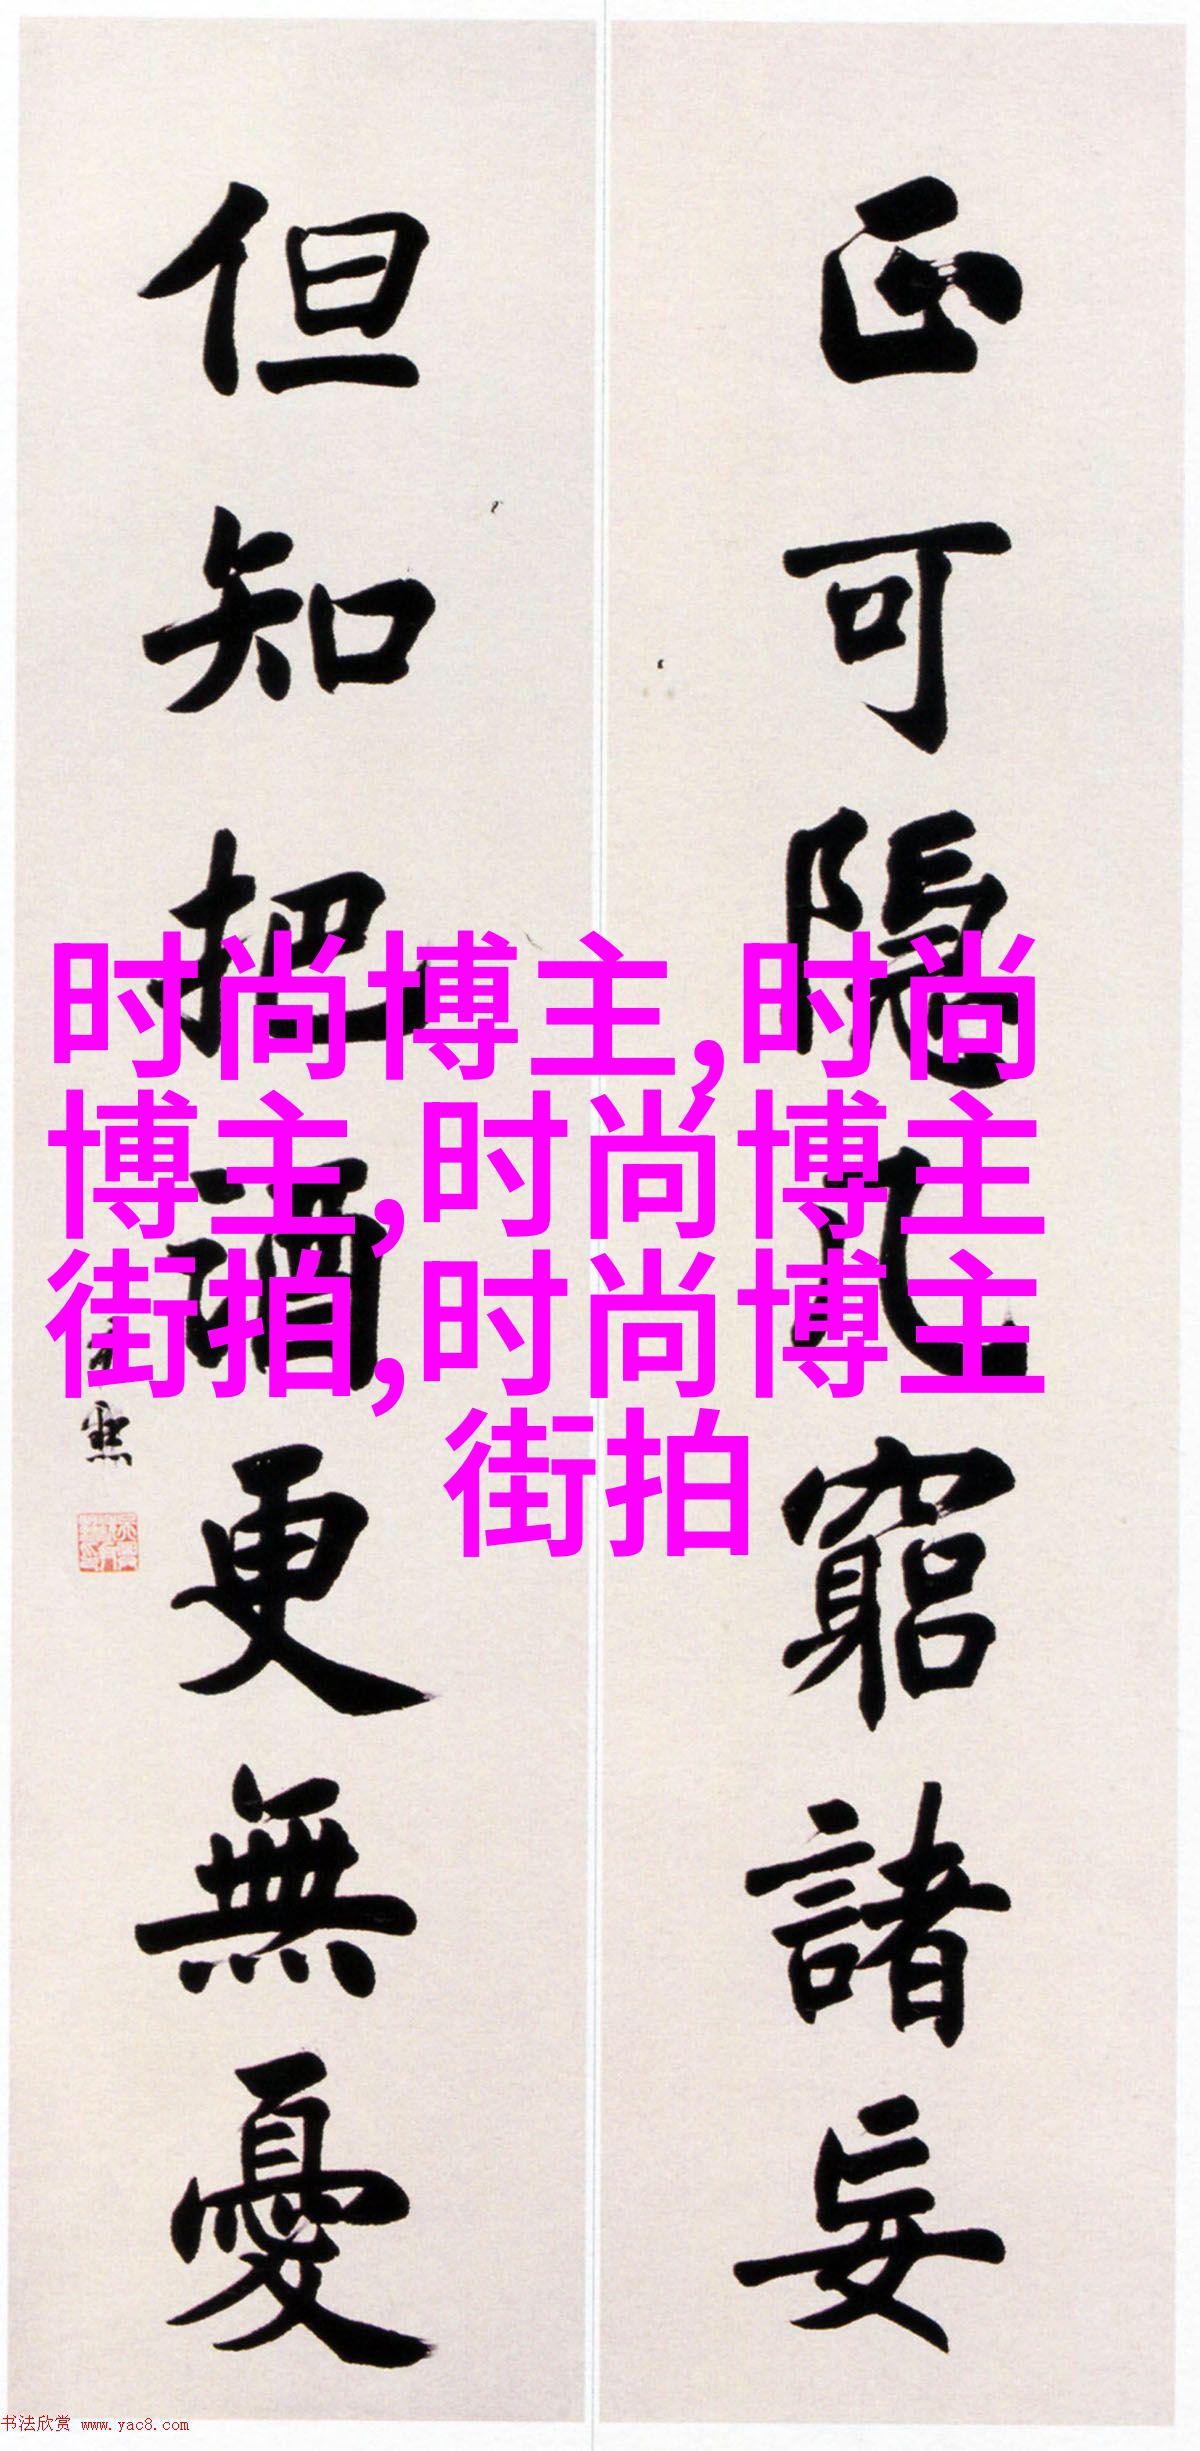 正可隱几窮諸妄
但知把酒更無憂
时尚博主,时尚
博主,时尚博主
街拍,时尚博主
街拍
书法欣赏 www.yac8.com